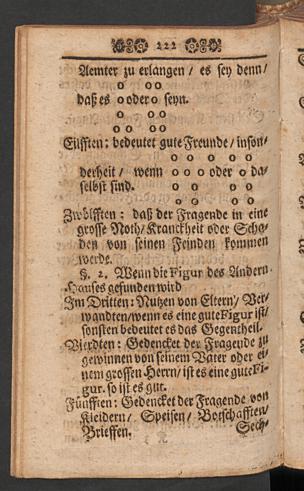 222
Aemter zu erlangen / es sey denn /
daß es oder seyn.
Eilfften: bedeutet gute Freunde / inson-
derheit / wenn oder da-
selbst sind.
Zwölfften: daß der Fragende in eine
grosse Noth / Kranckheit oder Scha-
den von seinen Feinden kommen
werde.
§. 2. Wenn die Figur des Andern
Hauses gefunden wird
Im Dritten: Nutzen von Eltern / Ver-
wandten / wenn es eine gute Figur ist /
sonsten bedeutet es das Gegentheil.
Vierdten: Gedencket der Fragende zu
gewinnen von seinem Vater oder ei-
nem grossen Herrn / ist es eine gute Fi-
gur. so ist es gut.
Fünfften: Gedencket der Fragende von
Kleidern / Speisen / Botschafften /
Brieffen. Sech-